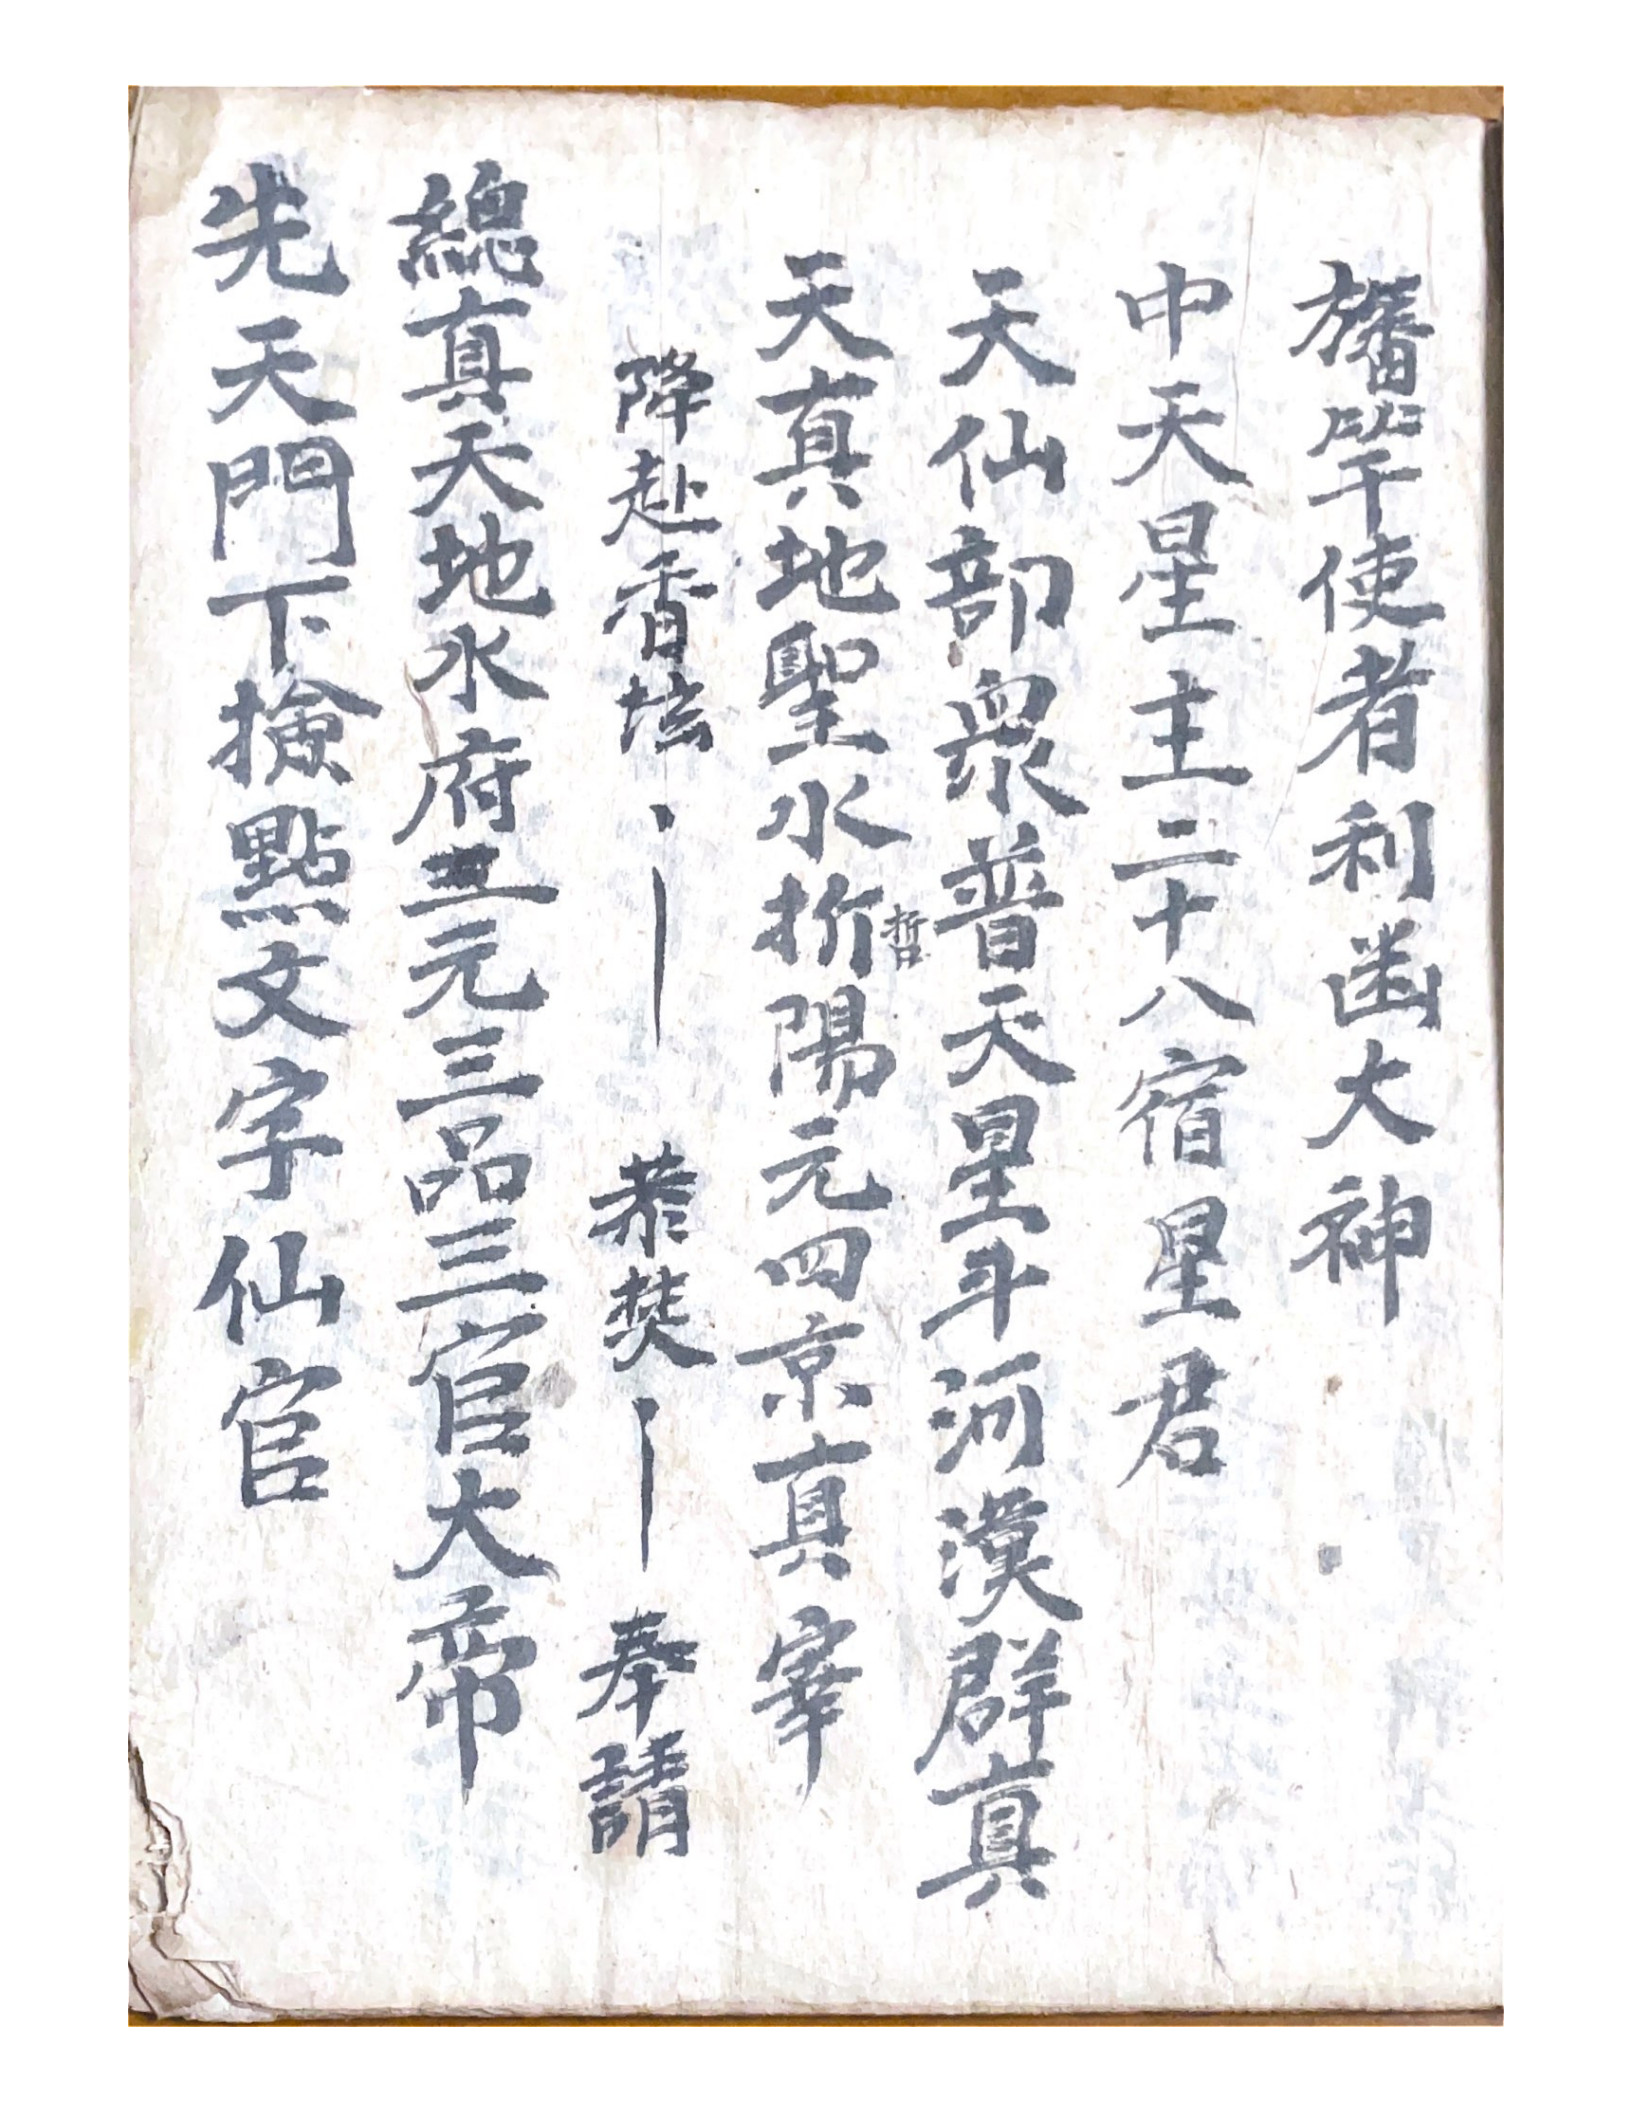 旛竿使者利𡿺大神
中天星主二十八宿星君
天仙部衆普天星斗河漢群真
天真地聖水折陽元四京真宰
哲
降赴香坛丶丨 恭焚丨 奉請
總真天地水府三元三品三官大帝
先天門下撿點文字仙官